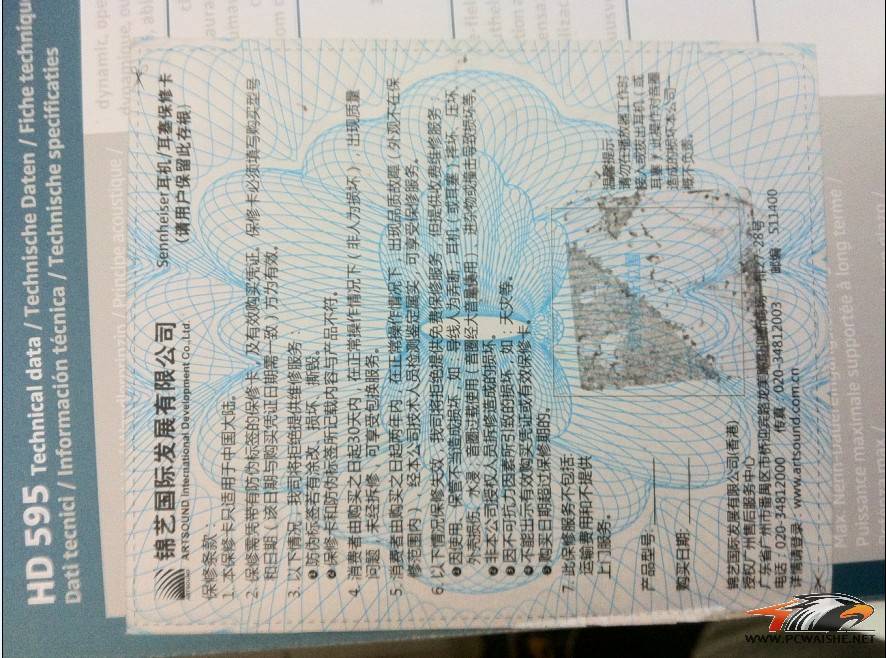 HD 595 Technical data / Technische Daten / Fiche technique
Dati tecnici / Información técnica / Technische specificaties
锦艺国际发展有限公司
ARTSOUND International Development Co.Ltd.
Sennheiser耳机/耳塞保修卡
(请用户保留此存根)
保修条款：
1. 本保修卡只适用于中国大陆。
2. 保修需凭带有防伪标签的保修卡，及有效购买凭证。保修卡必须填写购买型号
和日期（该日期与购买凭证日期需一致）方为有效。
3. 以下情况，我司将拒绝提供维修服务：
❶防伪标签若有涂改、损坏、撕毁。
❷保修卡和防伪标签所记载内容与产品不符。
4. 消费者由购买之日起30天内，在正常操作情况下（非人为损坏），出现质量
问题，未经拆修，可享受包换服务。
5. 消费者由购买之日起两年内，在正常操作情况下，出现品质故障（外观不在保
修范围内），经本公司技术人员检测鉴定属实，可享受保修服务。
6. 以下情况保修失效，我司将拒绝提供免费保修服务，但提供收费维修服务：
❶因使用、保管不当造成损坏，如：导线人为弄断、耳机（或耳塞）摔坏、压坏、
外壳损伤、水浸、音圈过载使用（音圈经大音量使用）、进杂物或撞击导致损坏等。
❷非本公司授权人员拆修造成的损坏。
❸因不可抗力因素所引致的损坏，如：天灾等。
❹不能出示有效购买凭证或有效保修卡。
❺购买日期超过保修期的。
7. 此保修服务不包括：
运输费用和不提供
上门服务。
温馨提示：
请勿在播放器工作时
接入或拔出耳机（或
耳塞），此操作对音圈
造成的损坏本公司
概不负责。
产品型号：
购买日期：
锦艺国际发展有限公司(香港)
授权广州售后服务中心
广东省广州市番禺区市桥迎宾路 27-28号
电话：020-34812000 传真：020-34812003 邮编：511400
详情请登录：www.artsound.com.cn
dynamic, ope
Principe acoustique /
Max. Nenn-Dauereingang
Puissance maximale supportée à long terme /
WWW.PCWAISHE.NET